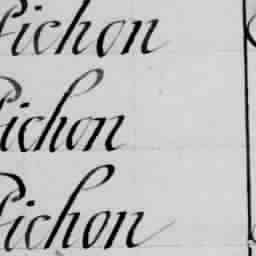 Pichon
Pichon
Pichon